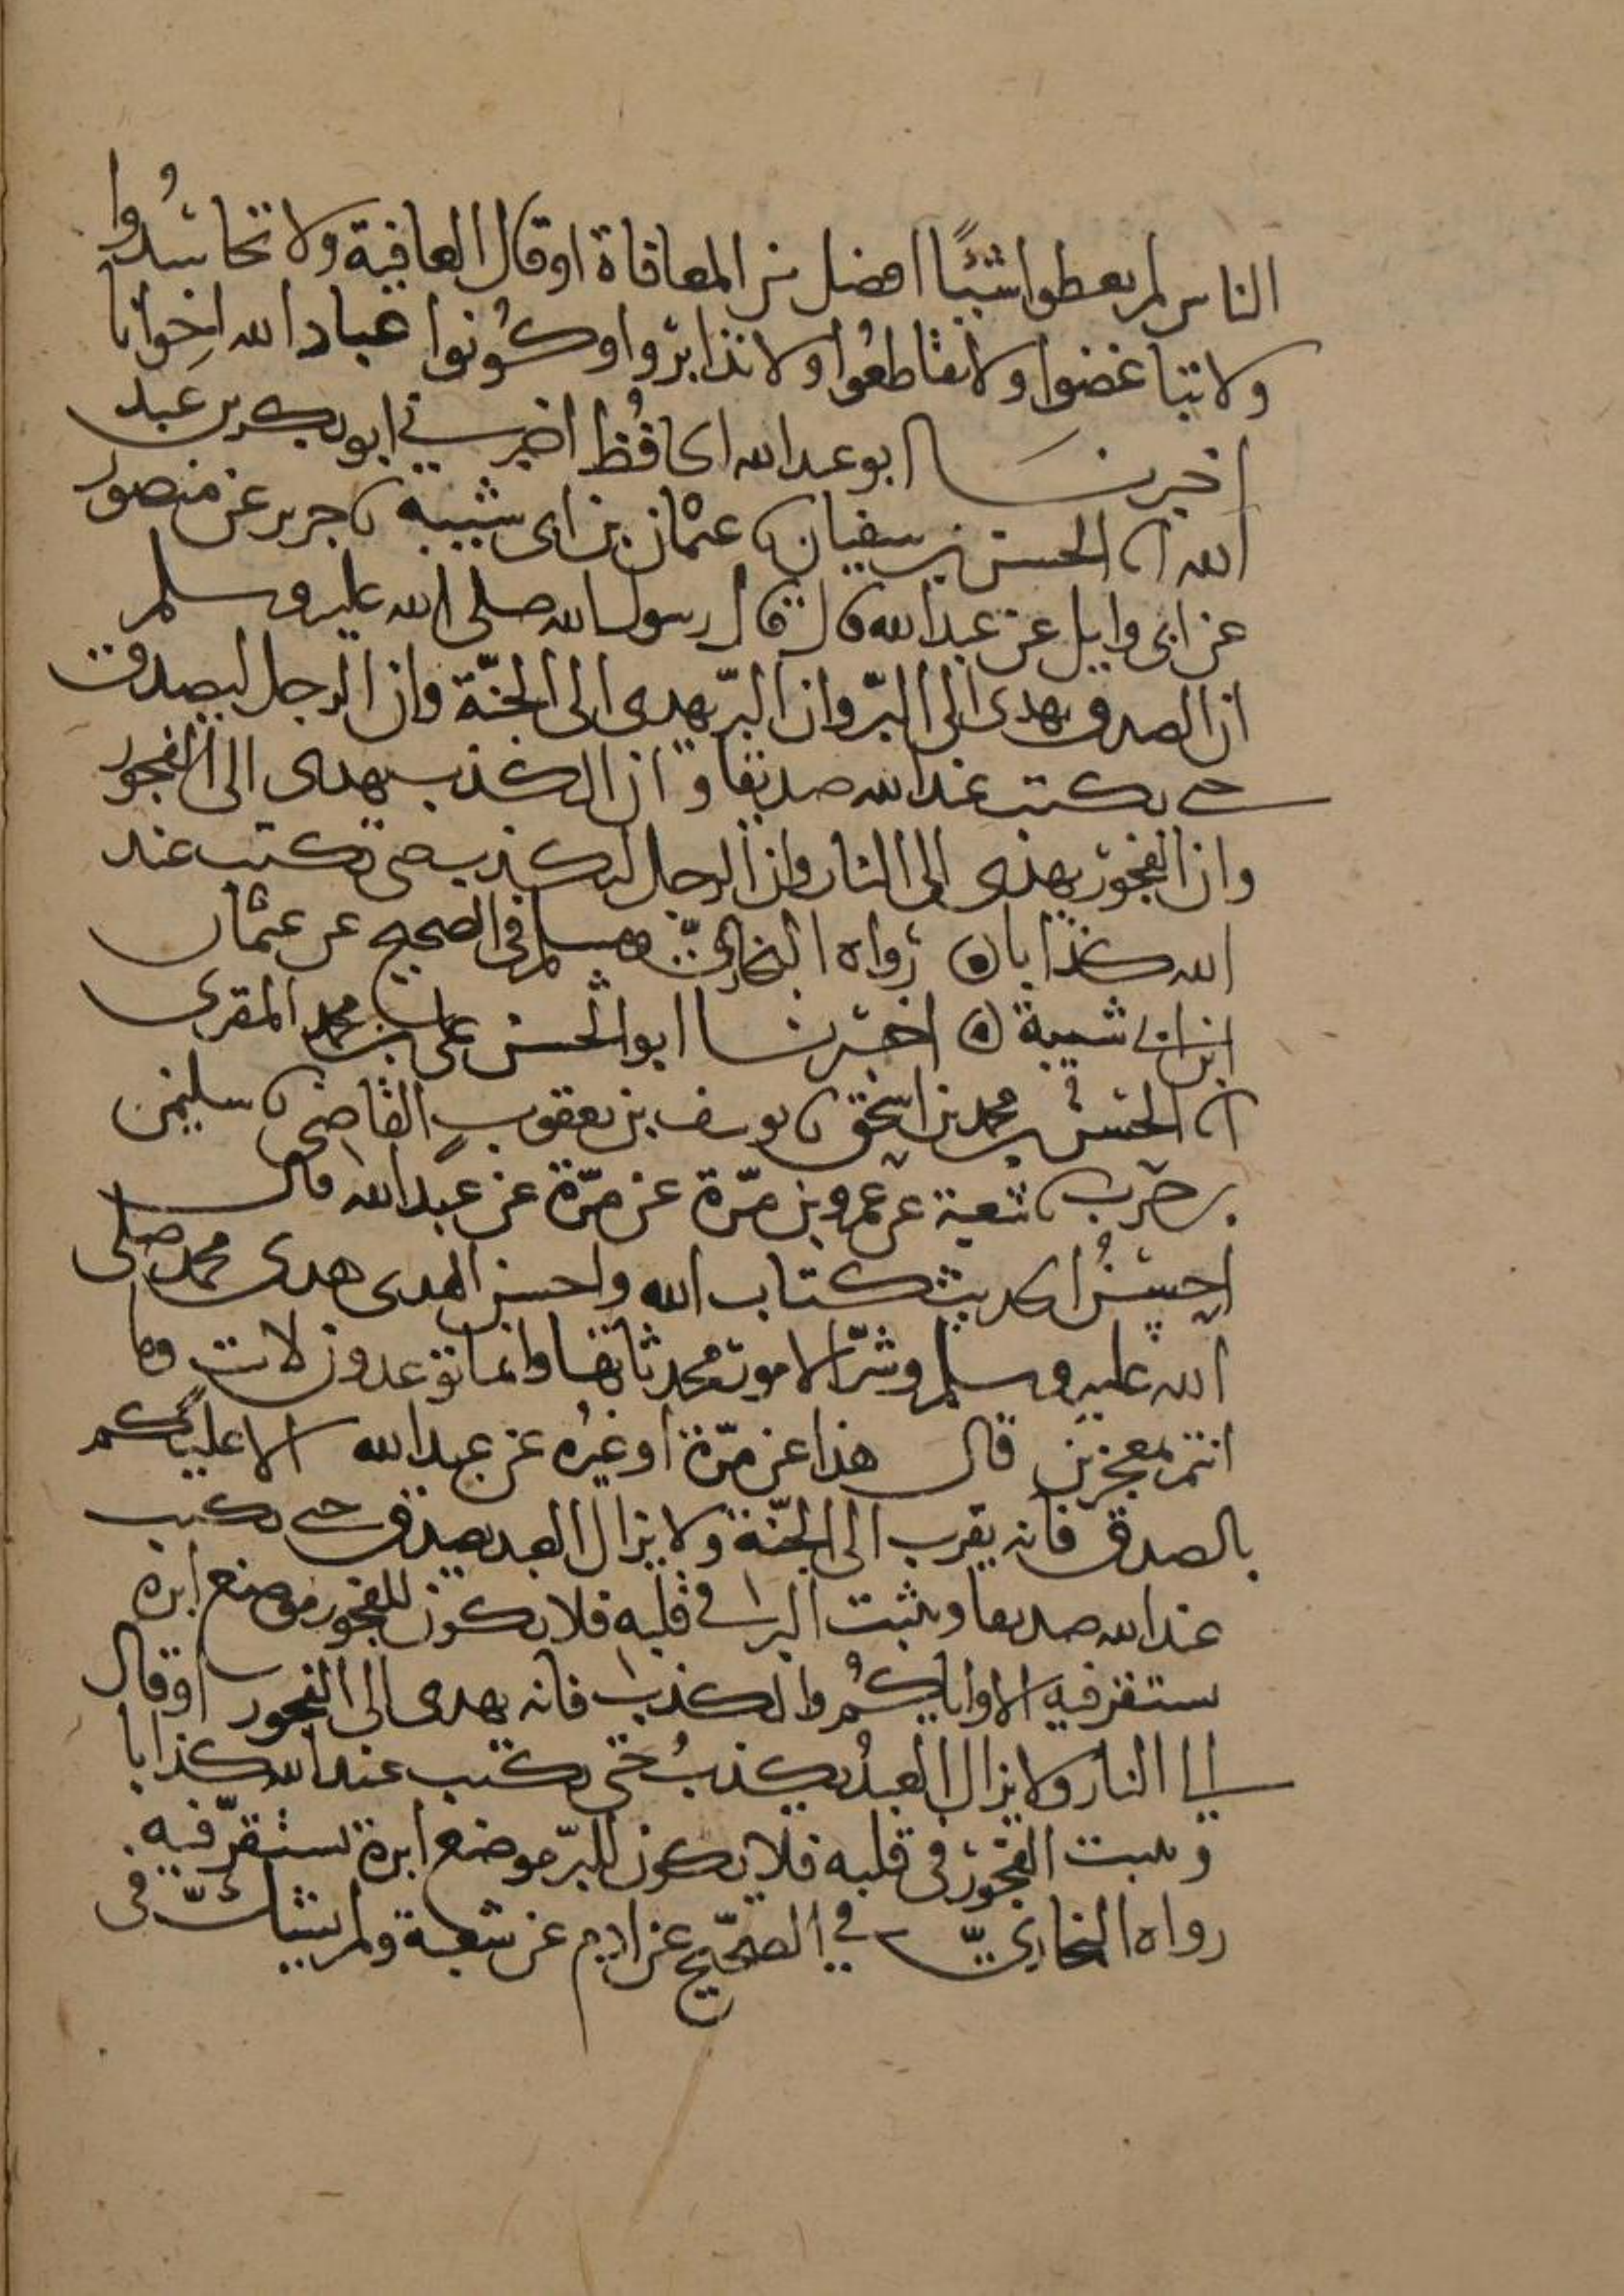 الناس لم يعطوا شيئًا افضل من المعافاة او قال العافية ولا تحاسدُوا
ولا تباغضوا ولا تقاطعُوا ولا تدابرُوا وكُونوا عباد الله اخِوانا
اخبرنا ابو عبد الله الحافُظ اخبرني ابو بكر بن عبد
الله انا الحسن بن سفيان نا عثمان بن ابى شيبه نا جرير عن منصور
عن ابى وايل عن عبد الله قال قال رسول الله صلى الله عليه وسلم
ان الصدق يهدى الى البرّ وان البرّ يهدى الى الجنّة وان الرجل ليصدق
حتى يكتب عند الله صديقا وان الكذب يهدى الى الفجور
وان الفجور يهدى الى النار وان الرجل ليكذب حتى يكتب عند
الله كذابا ۞ رواه البخارىّ ومسلم فى الصحيح عن عثمان
ابن ابى شيبة ۞ اخبرنا ابو الحسن على بن محمد المقرى
انا الحسن بن محمد بن اسحق نا يوسف بن يعقوب القاضى نا سليمن
بن حرب نا شعبة عن عمرو بن مرّة عن مرّة عن عبد الله قال
احسنُ الحديث كتاب الله واحسن الهدى هدى محمد صلى
الله عليه وسلم وشرّ الامور محدثاتها وانما توعدون لات وما
انتم بمعجزين قال هذا عن مرّة او غيرُه عن عبد الله الا عليكم
بالصدق فانه يقرب الى الجنّة ولا يزال العبد يصدق حتى يكتب
عند الله صديقا ويثبت البر فى قلبه فلا يكون للفجور موضع ابرة
ستقر فيه الا واياكُم والكذب فانه يهدى الى الفجور او قال
الى النار ولا يزال العبدُ يكذبُ حتى يكتب عند الله كذابا
ويثبت الفجور فى قلبه فلا يكون للبرّ موضع ابرة تستقرّ فيه
رواه البخارىّ في الصحيح عن ادم عن شعبة ولم يشكّ فى